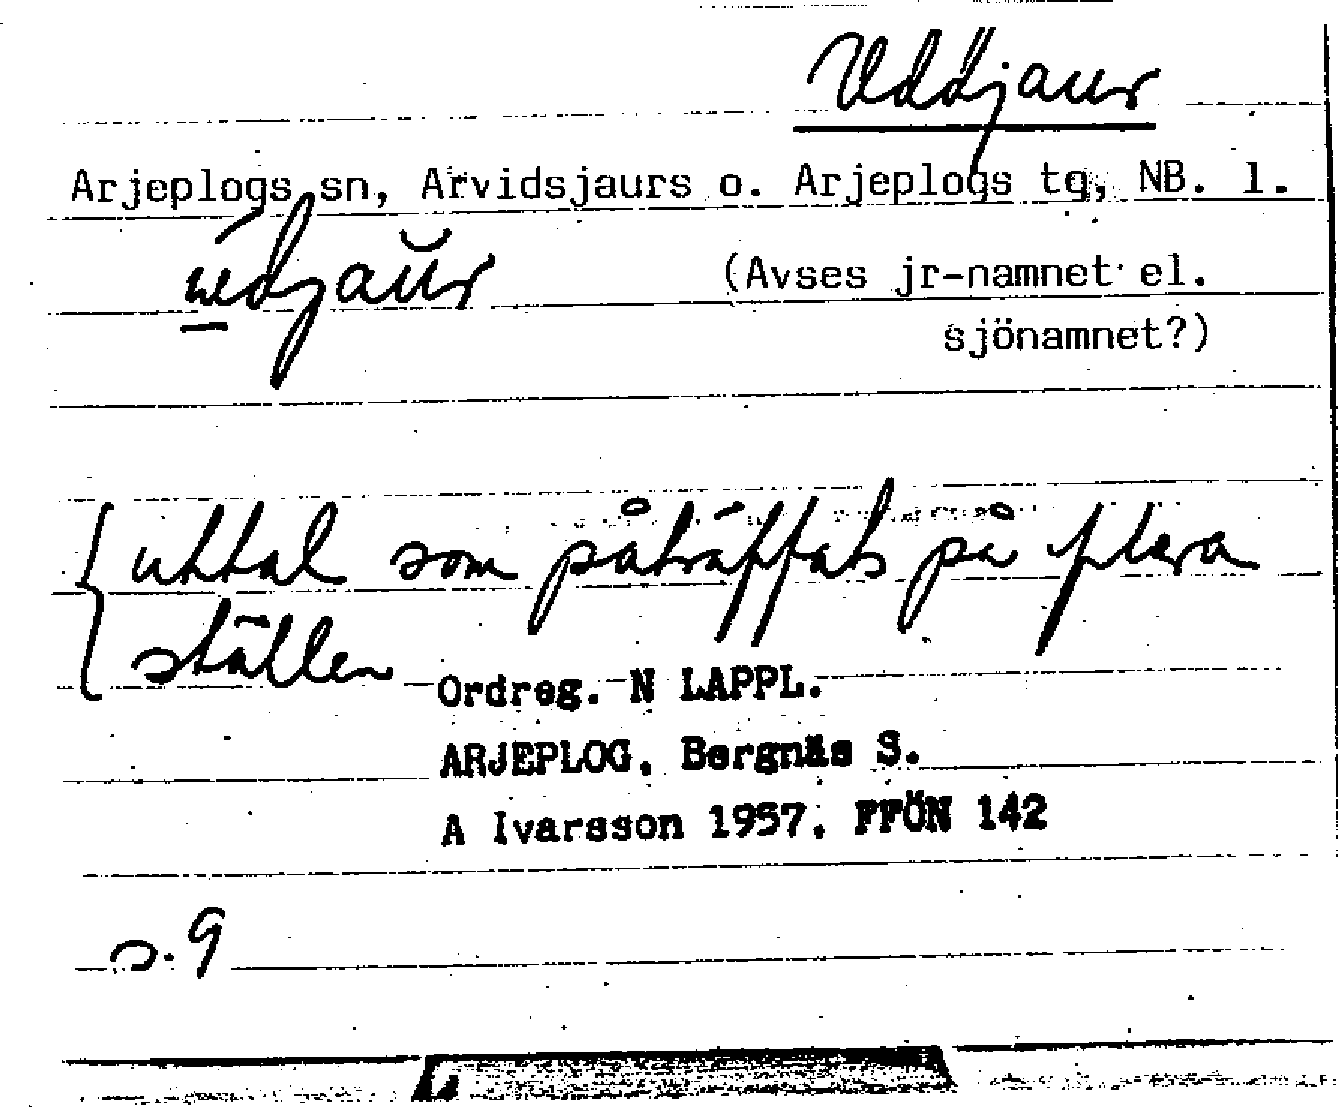 Uddjaur
Arjeplogs sn, Arvidsjaurs o. Arjeplogs tg, NB. l.
(Avses jr-namnet el.
sjönamnet?)
uttal som påträffats på flera
ställen
Ordreg. N LAPPL.
ARJEPLOG. Bergnäs S.
A Ivarsson 1957. FFÖN 142
s. 9